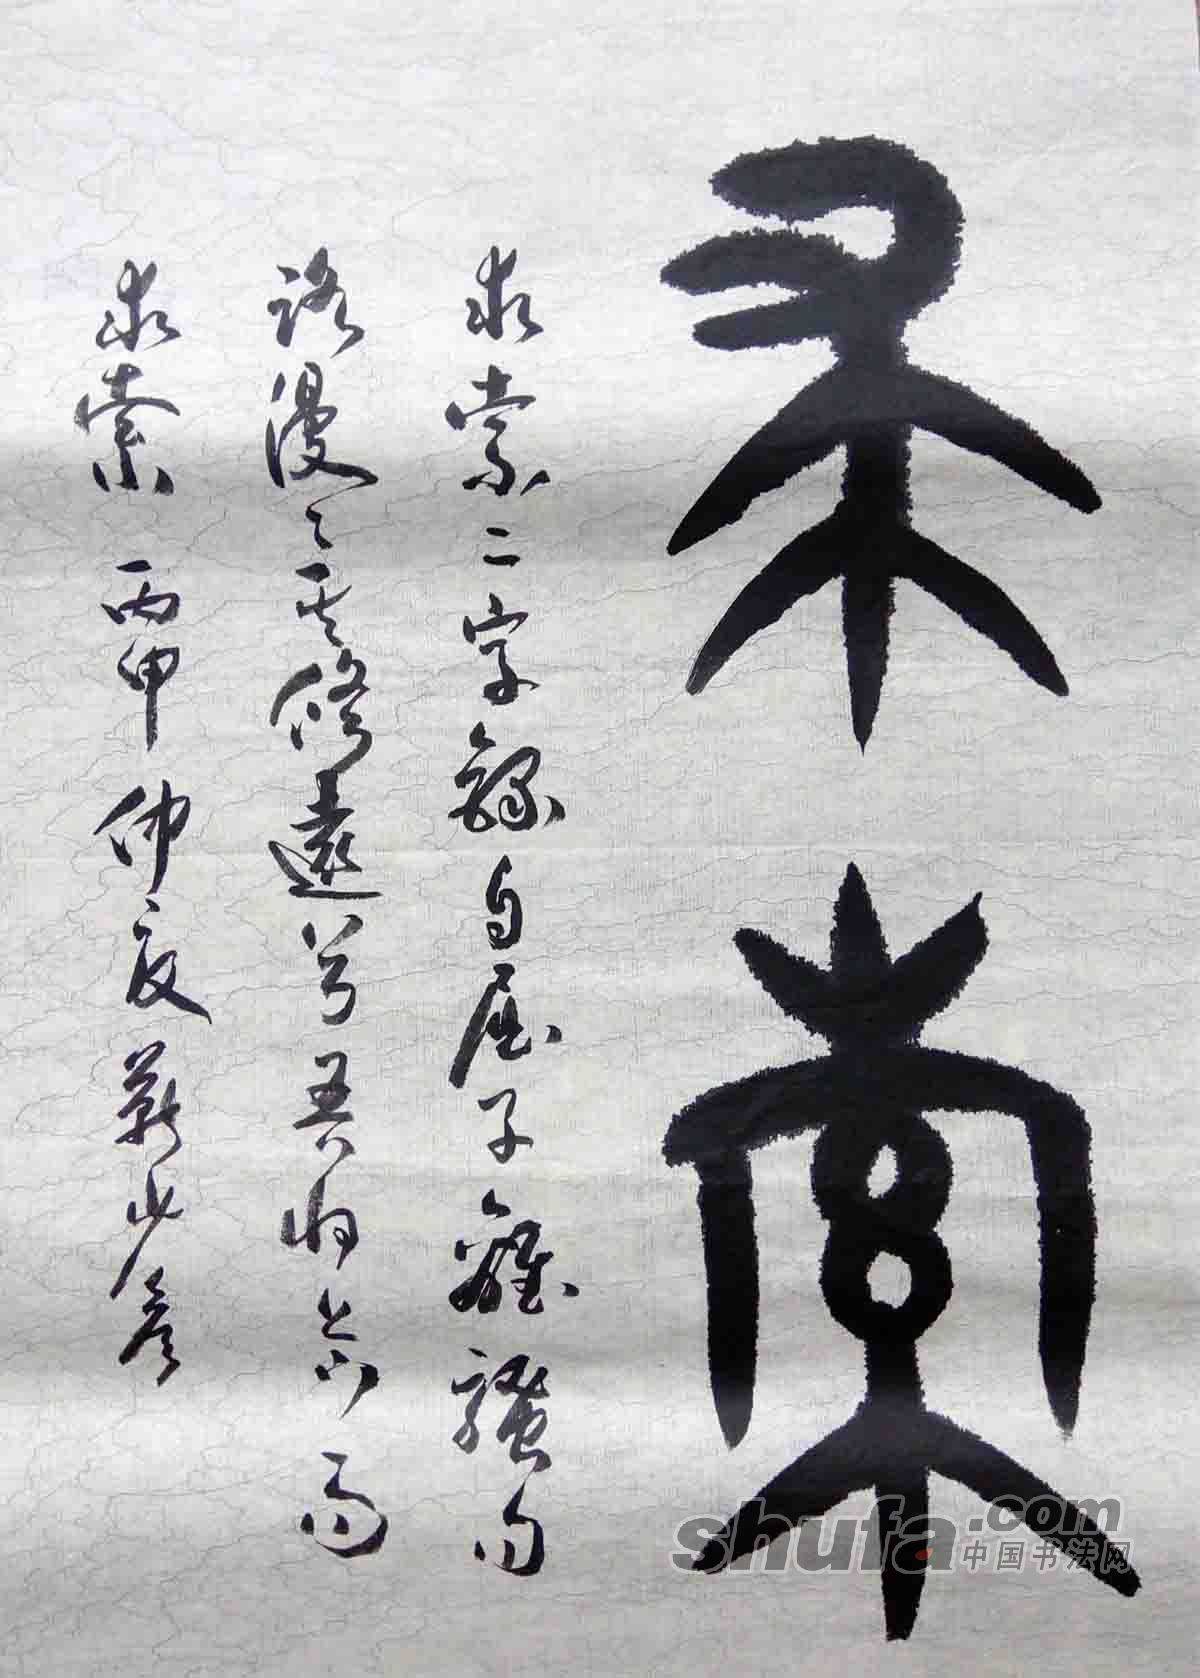 求索
求索二字録自屈子離騷句
路漫々其修遠兮吾將上下而
求索 丙申仲夏
shufa.com
中国书法网